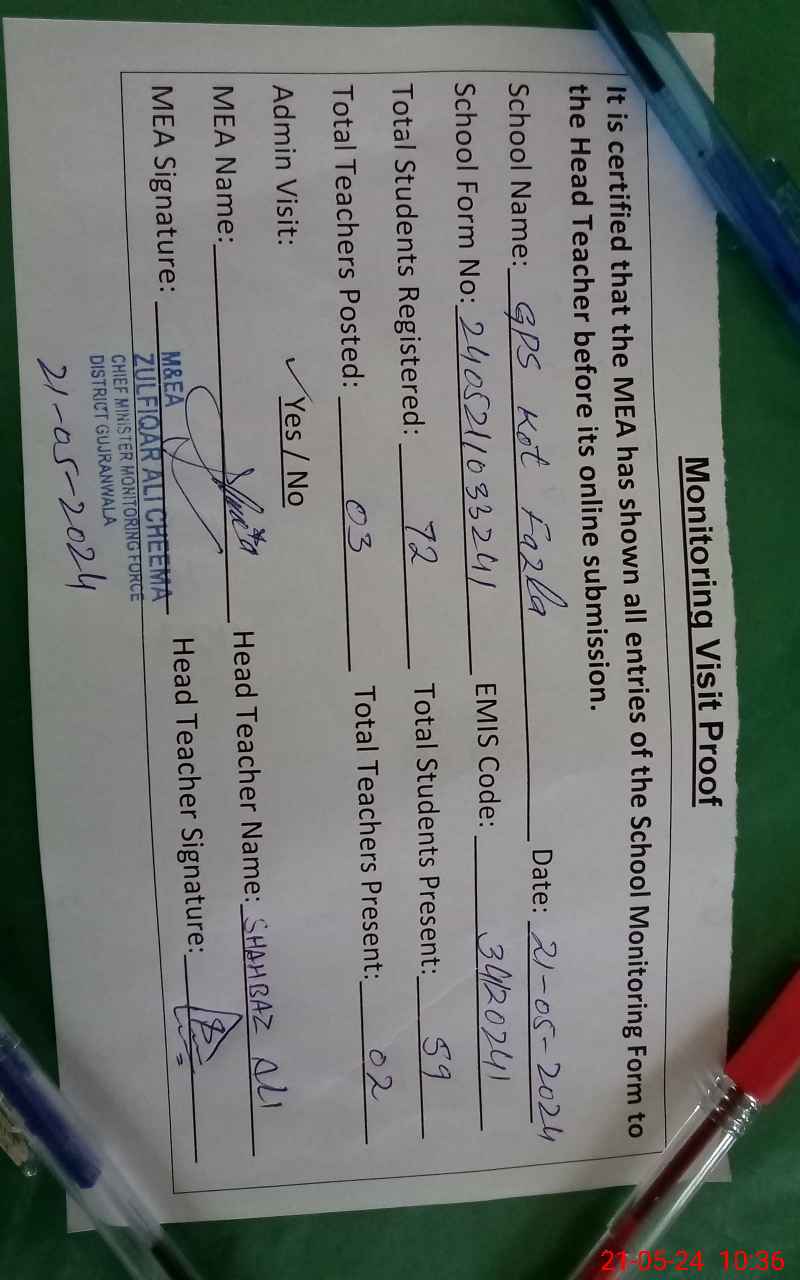 Monitoring Visit Proof
It is certified that the MEA has shown all entries of the School Monitoring Form to
the Head Teacher before its online submission.
School Name: GPS Kot Fazla Date: 21-05-2024
School Form No: 240521033241 EMIS Code: 34120241
Total Students Registered: 72 Total Students Present: 59
Total Teachers Posted: 03 Total Teachers Present: 02
Admin Visit: ✓ Yes / No
MEA Name: Head Teacher Name: SHAHBAZ ALI
MEA Signature: Head Teacher Signature:
M&EA
ZULFIQAR ALI CHEEMA
CHIEF MINISTER MONITORING FORCE
DISTRICT GUJRANWALA
21-05-2024
21-05-24 10:36